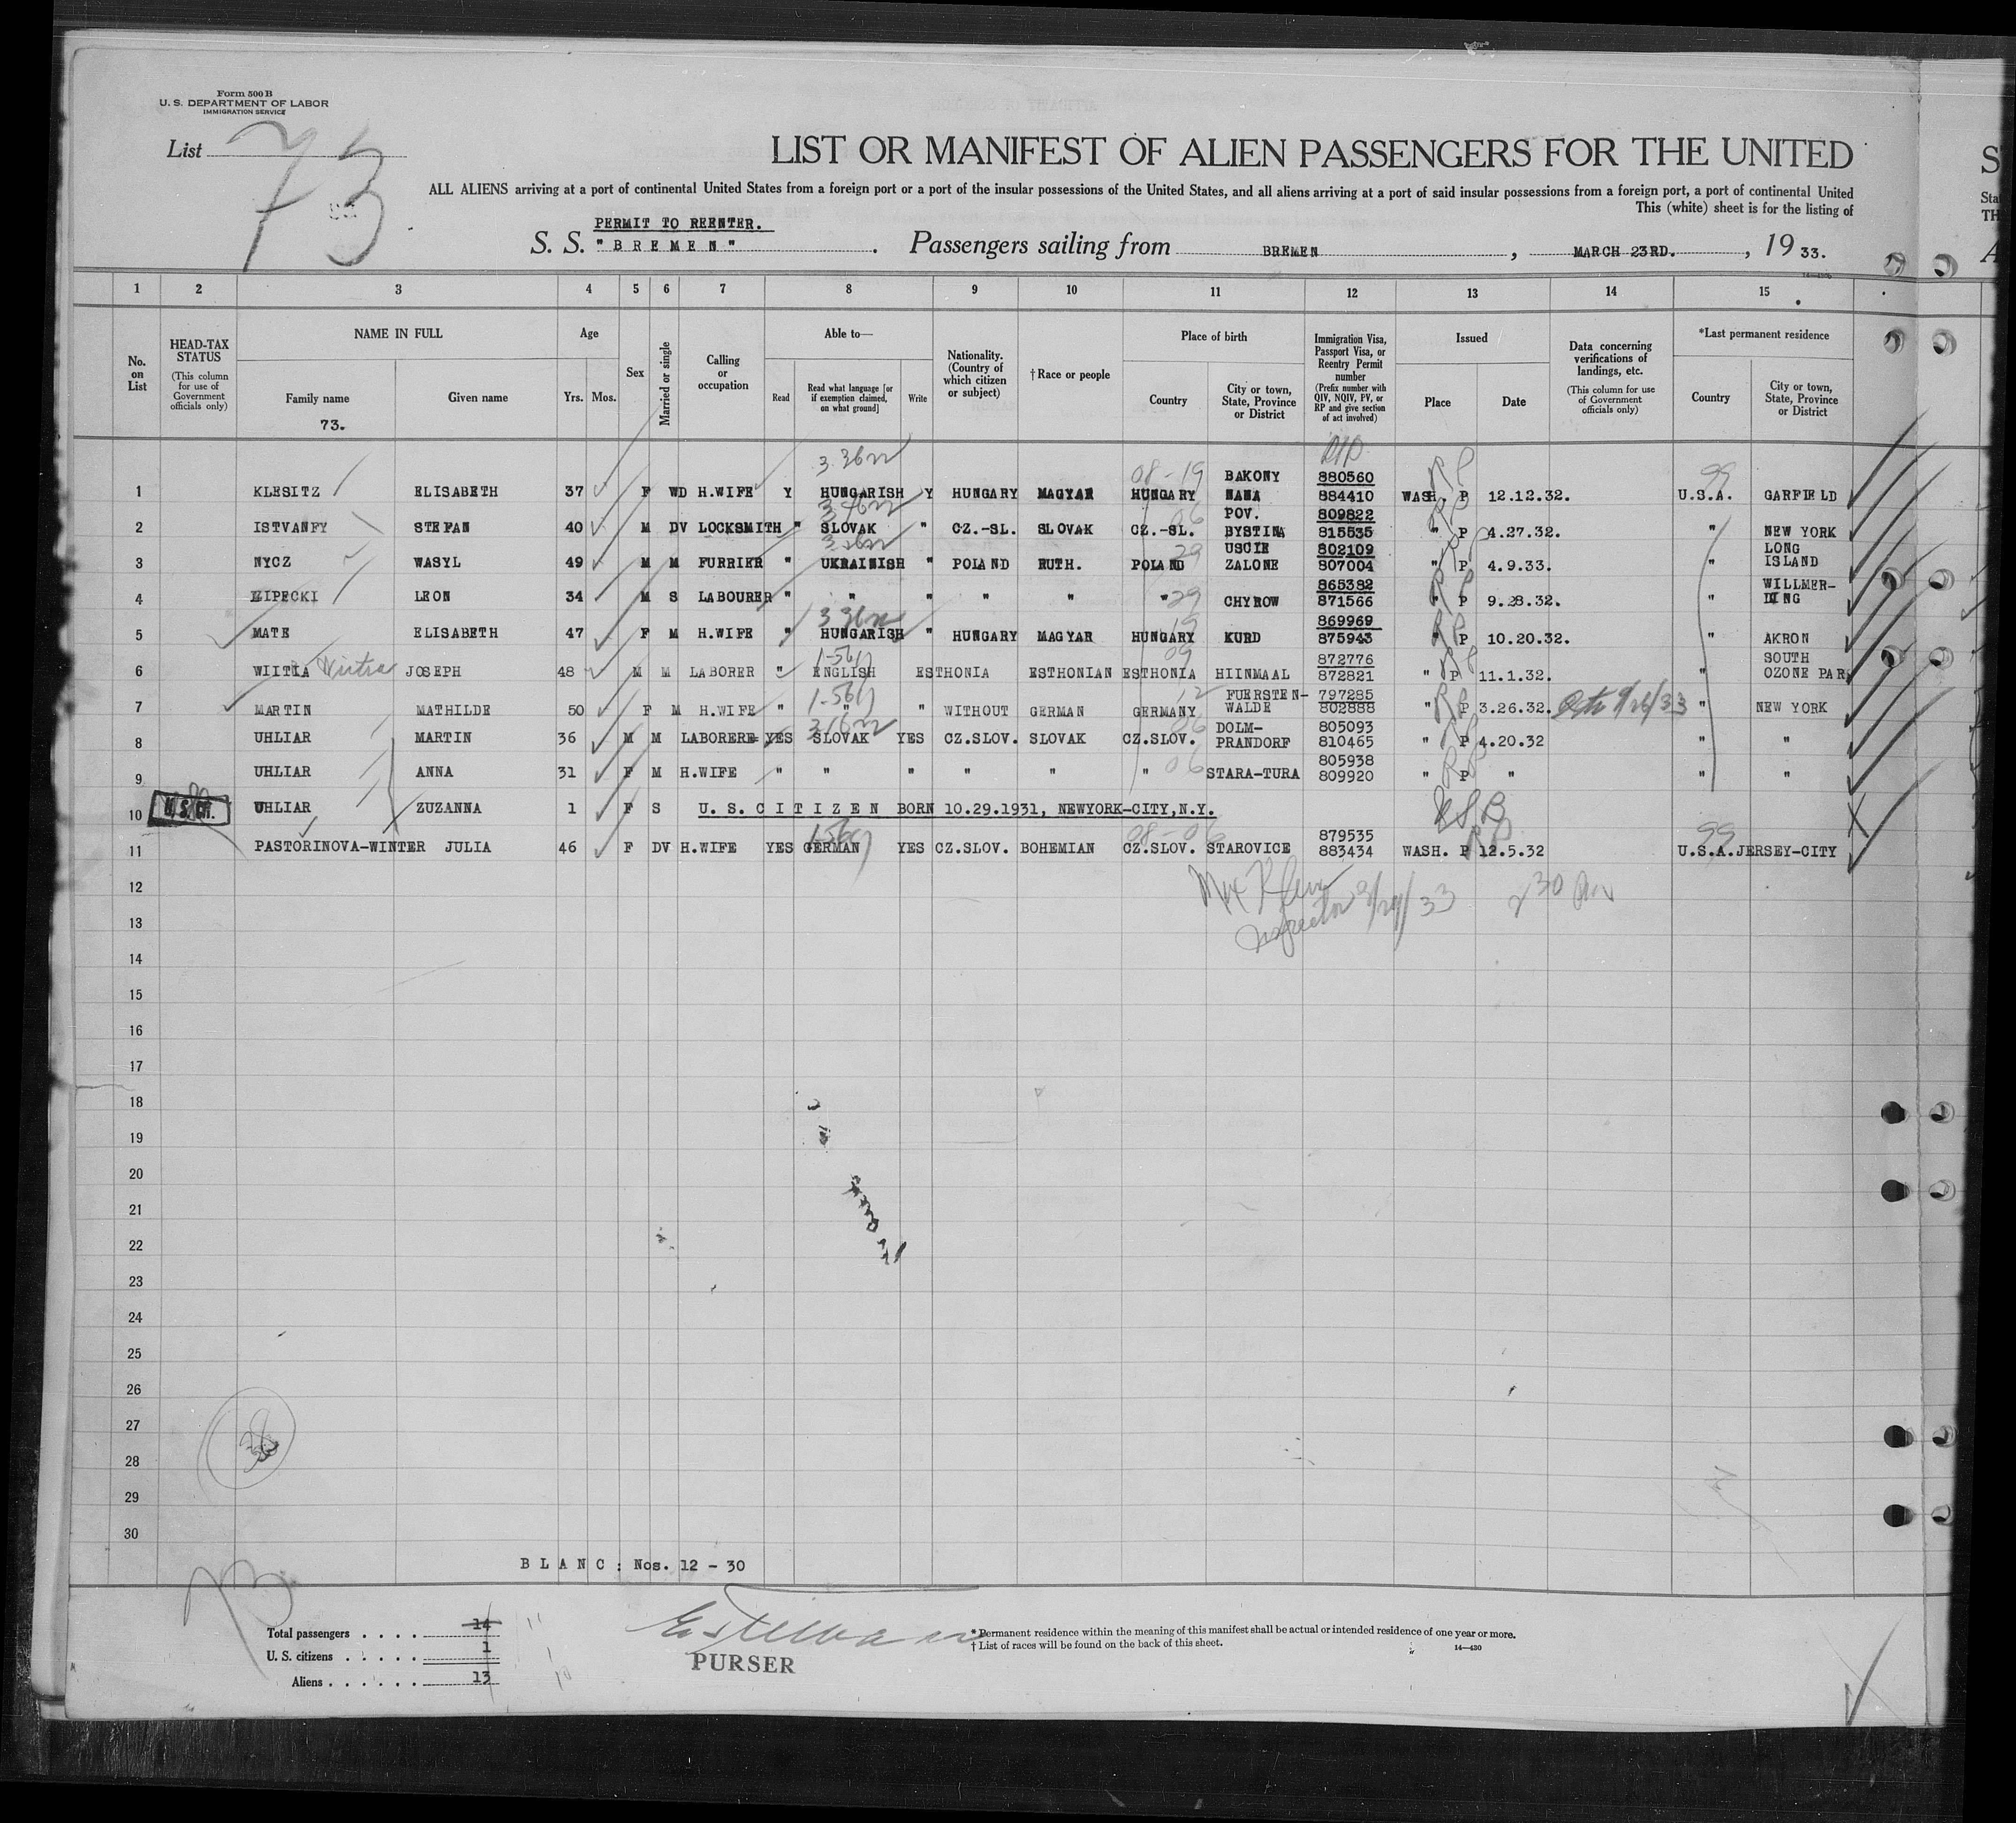 Form 500 B
U. S. DEPARTMENT OF LABOR
IMMIGRATION SERVICE
List 73
LIST OR MANIFEST OF ALIEN PASSENGERS FOR THE UNITED
ALL ALIENS arriving at a port of continental United States from a foreign port or a port of the insular possessions of the United States, and all aliens arriving at a port of said insular possessions from a foreign port, a port of continental United
This (white) sheet is for the listing of
PERMIT TO REENTER.
S. S. "BREMEN". Passengers sailing from BREMEN, MARCH 23RD., 19 33.
1 2 3 4 5 6 7 8 9 10 11 12 13 14 15
No. on List
HEAD-TAX STATUS
(This column for use of Government officials only)
NAME IN FULL
Family name
73.
Given name
Age
Yrs. Mos.
Sex
Married or single
Calling or occupation
Able to—
Read
Read what language [or if exemption claimed, on what ground]
Write
Nationality. (Country of which citizen or subject)
† Race or people
Place of birth
Country
City or town, State, Province or District
Immigration Visa, Passport Visa, or Reentry Permit number
(Prefix number with QIV, NQIV, PV, or RP and give section of act involved)
Issued
Place
Date
Data concerning verifications of landings, etc.
(This column for use of Government officials only)
*Last permanent residence
Country
City or town, State, Province or District
1 KLESITZ ELISABETH 37 F WD H.WIFE Y HUNGARISH Y HUNGARY MAGYAR HUNGARY BAKONY NANA 880560 884410 WASH. P 12.12.32. U.S.A. GARFIELD
2 ISTVANFY STEFAN 40 M DV LOCKSMITH " SLOVAK " CZ.-SL. SLOVAK CZ.-SL. POV. BYSTINA 809822 815535 " P 4.27.32. " NEW YORK
3 NYCZ WASYL 49 M M FURRIER " UKRAINISH " POLAND RUTH. POLAND USCIE ZALONE 802109 807004 " P 4.9.33. " LONG ISLAND
4 LIPECKI LEON 34 M S LABOURER " " " " " " CHYROW 865382 871566 " P 9.28.32. " WILLMER-DING
5 MATE ELISABETH 47 F M H.WIFE " HUNGARISH " HUNGARY MAGYAR HUNGARY KURD 869969 875943 " P 10.20.32. " AKRON
6 WIITIA JOSEPH 48 M M LABORER " ENGLISH ESTHONIA ESTHONIAN ESTHONIA HIINMAAL 872776 872821 " P 11.1.32. " SOUTH OZONE PAR
7 MARTIN MATHILDE 50 F M H.WIFE " " " WITHOUT GERMAN GERMANY FUERSTEN-WALDE 797285 802888 " P 3.26.32. " NEW YORK
8 UHLIAR MARTIN 36 M M LABORERE YES SLOVAK YES CZ.SLOV. SLOVAK CZ.SLOV. DOLM-PRANDORF 805093 810465 " P 4.20.32 " "
9 UHLIAR ANNA 31 F M H.WIFE " " " " " " STARA-TURA 805938 809920 " P " " "
10 UHLIAR ZUZANNA 1 F S U. S. CITIZEN BORN 10.29.1931, NEWYORK-CITY,N.Y. USB
11 PASTORINOVA-WINTER JULIA 46 F DV H.WIFE YES GERMAN YES CZ.SLOV. BOHEMIAN CZ.SLOV. STAROVICE 879535 883434 WASH. P 12.5.32 U.S.A. JERSEY-CITY
12 Inspector 3/29/33 2 30 PM
13
14
15
16
17
18
19
20
21
22
23
24
25
26
27
28
29
30
BLANC: Nos. 12 - 30
73
Total passengers . . . . 14 11
U. S. citizens . . . . . 1 1
Aliens . . . . . . 13 10
PURSER
* Permanent residence within the meaning of this manifest shall be actual or intended residence of one year or more.
† List of races will be found on the back of this sheet.
14—430